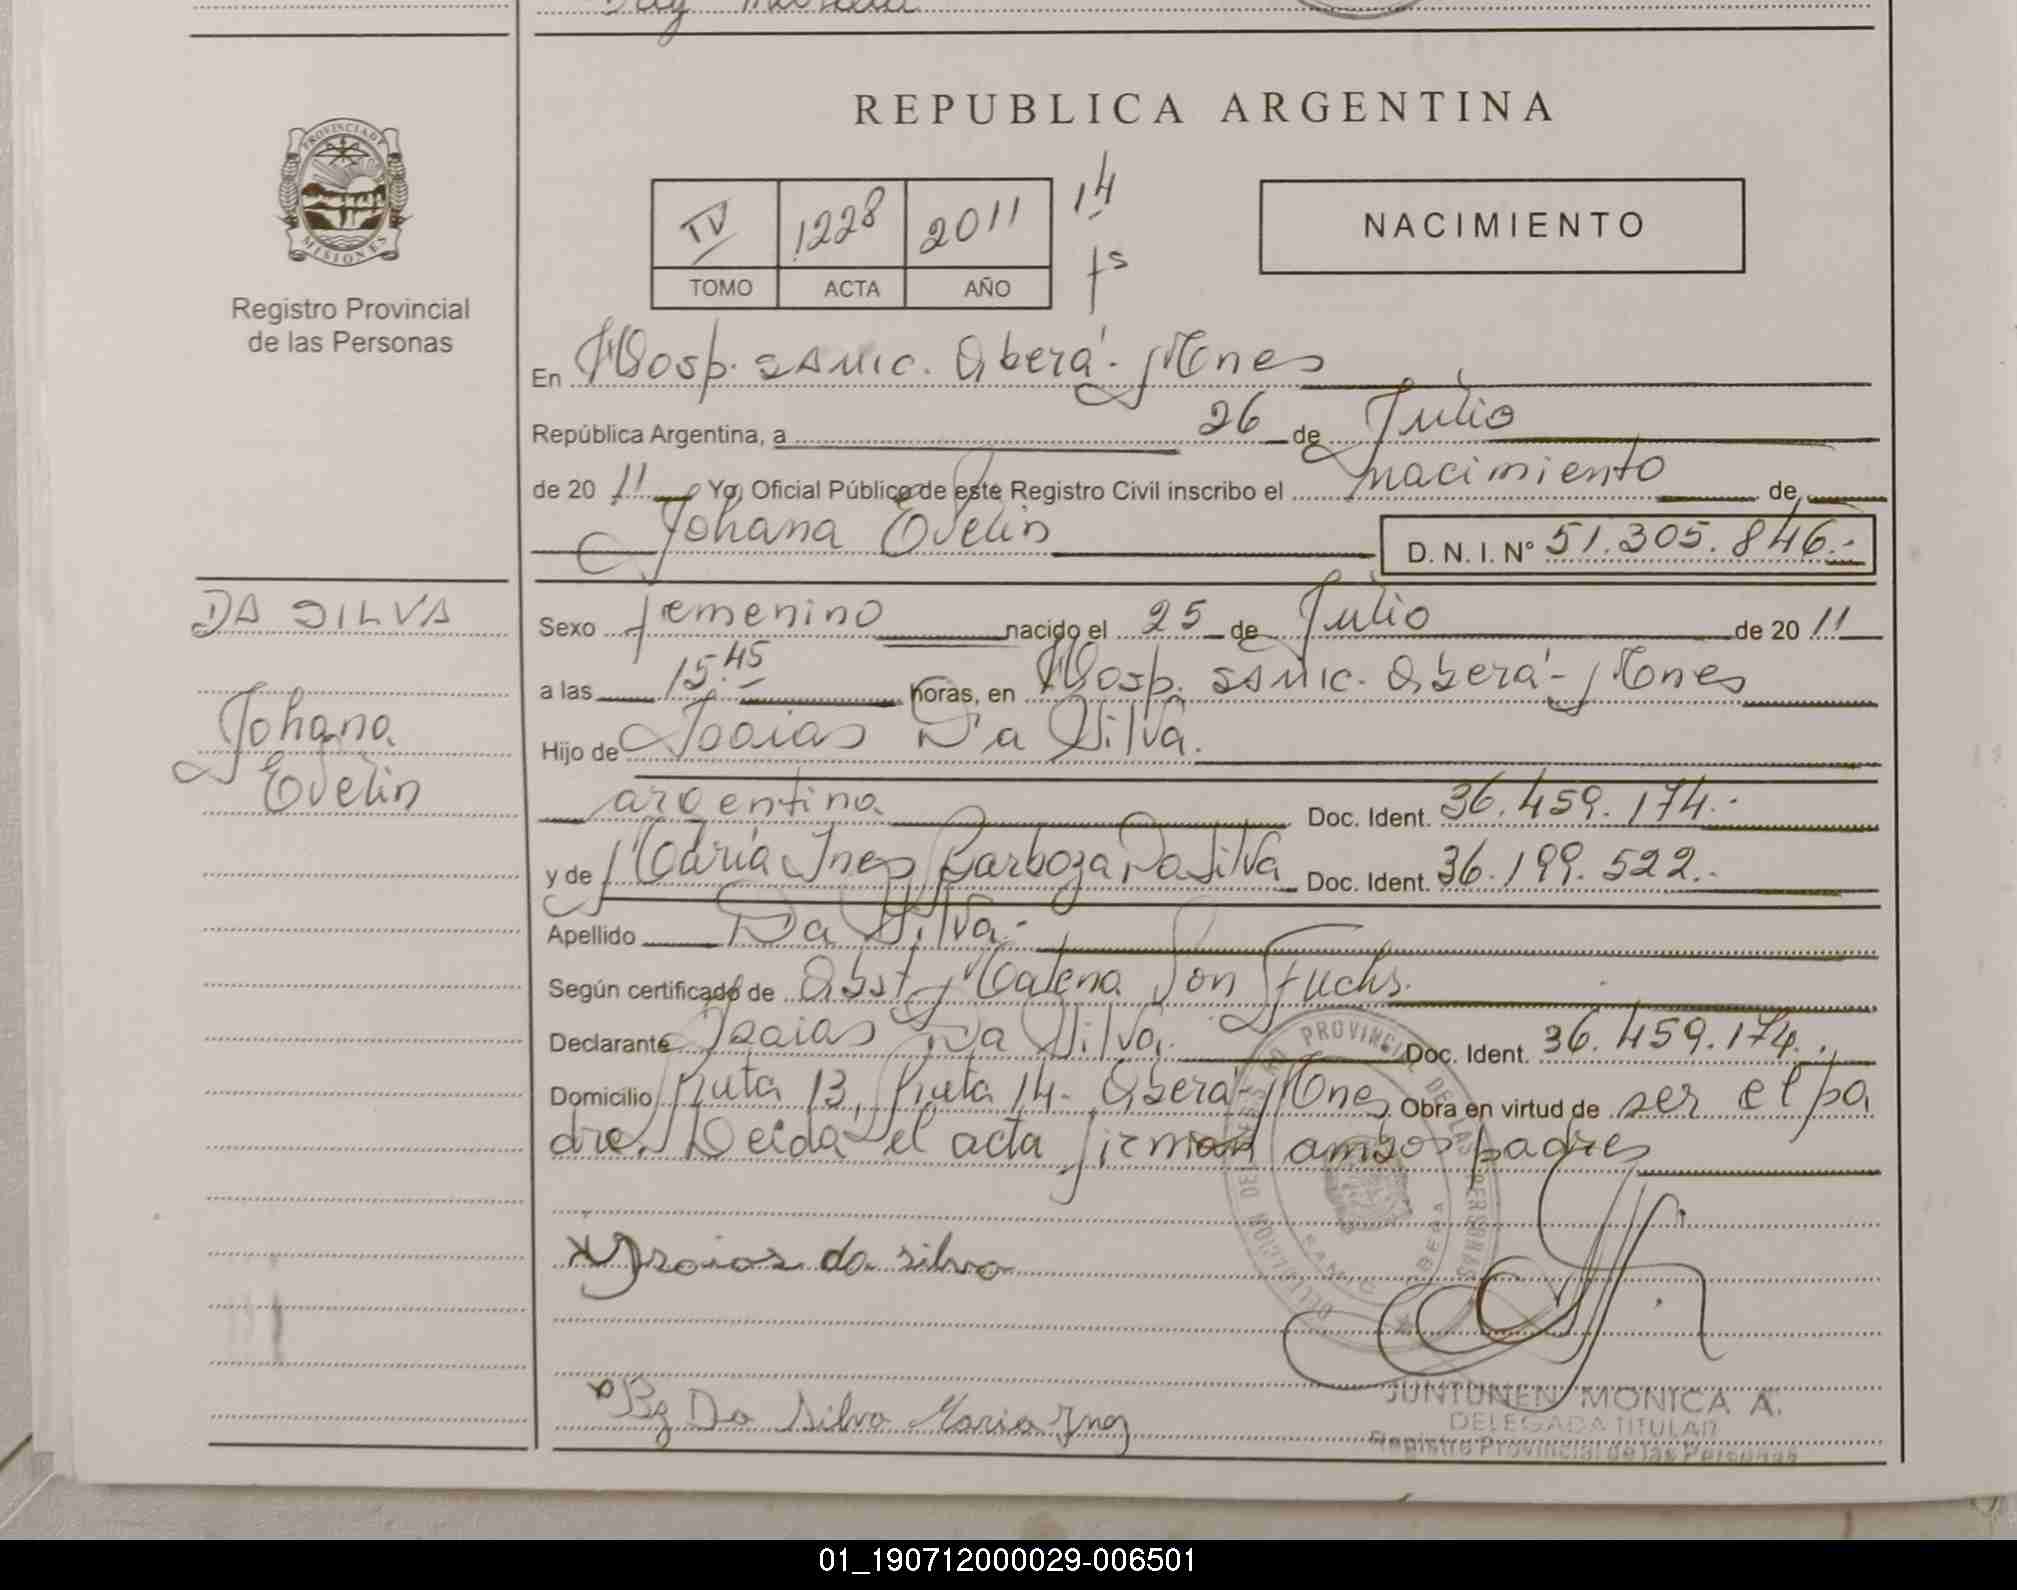 REPUBLICA ARGENTINA
PROVINCIA DE
MISIONES
Registro Provincial
de las Personas
IV 1228 2011 14
TOMO ACTA AÑO fs
NACIMIENTO
En Hosp. SAMIC. Oberá - Mnes
República Argentina, a 26 de Julio
de 20 11 Yo, Oficial Público de este Registro Civil inscribo el nacimiento de
Johana Evelin D. N. I. N° 51.305.846.-
DA SILVA
Johana
Evelin
Sexo femenino nacido el 25 de Julio de 20 11
a las 15.45 horas, en Hosp. SAMIC. Oberá - Mnes
Hijo de Isaias Da Silva.
argentina Doc. Ident. 36.459.174.-
y de Maria Ines Barboza Da Silva Doc. Ident. 36.199.522.-
Apellido Da Silva.-
Según certificado de Obst. Malena Von Fuchs.
Declarante Isaias Da Silva. Doc. Ident. 36.459.174.
Domicilio Ruta 13, Ruta 14. Oberá - Mnes Obra en virtud de ser el pa
dre. Leida el acta firman ambos padres
Isaias da silva
Bz Da Silva Maria Ines
JUNTUNEN MONICA A.
DELEGADA TITULAR
Registro Provincial de las Personas
01_190712000029-006501